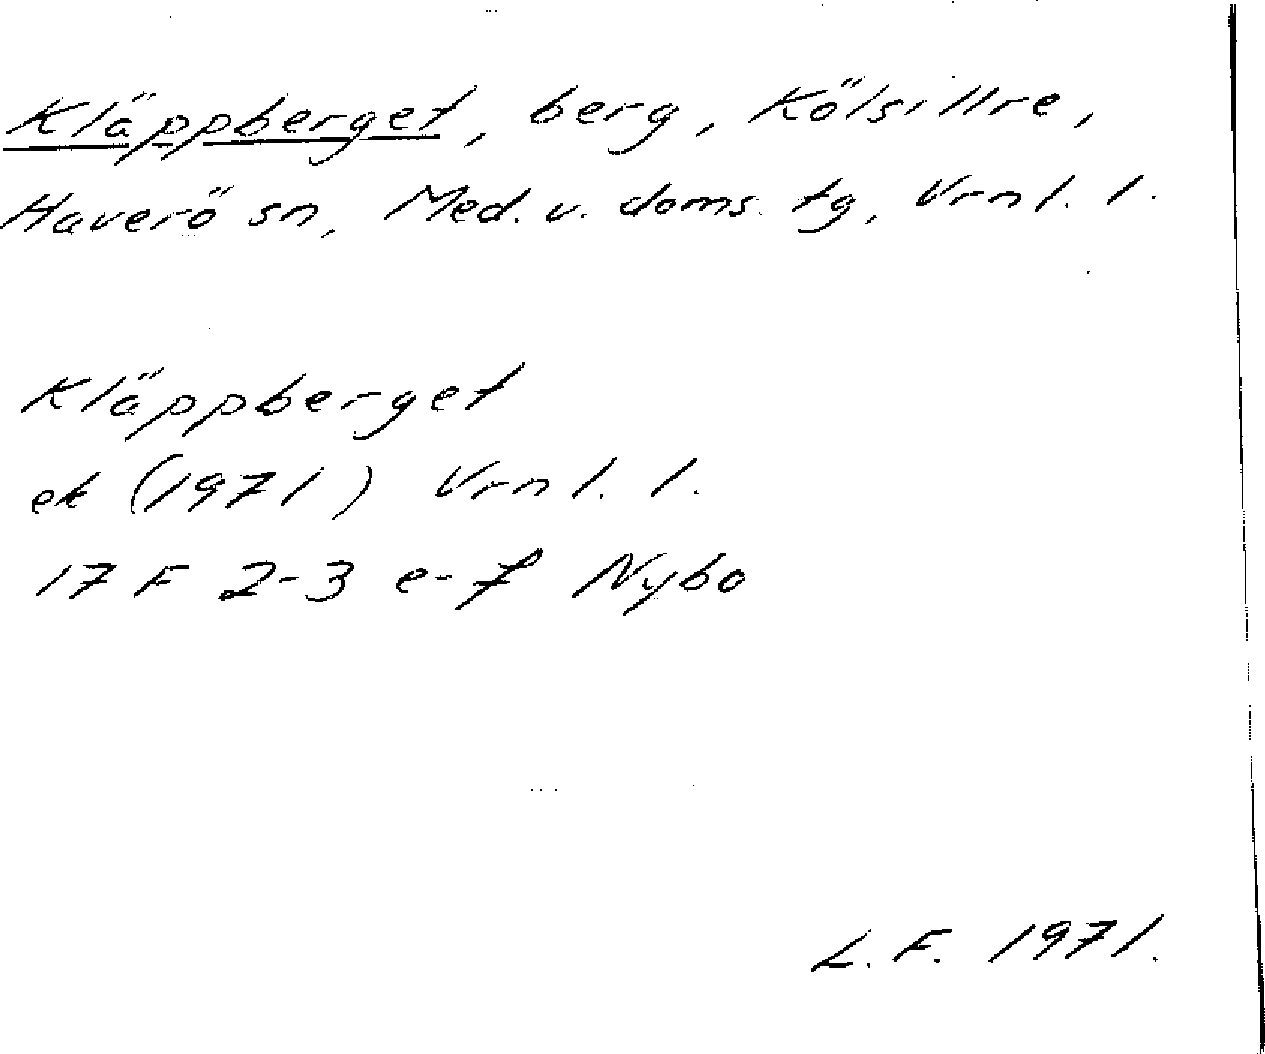 Kläppberget, berg, Kölsillre,
Haverö sn, Med. v. doms. tg, Vrnl. l.
Kläppberget
ek (1971) Vrnl. l.
17 F 2-3 e-f Nybo
L. F. 1971.